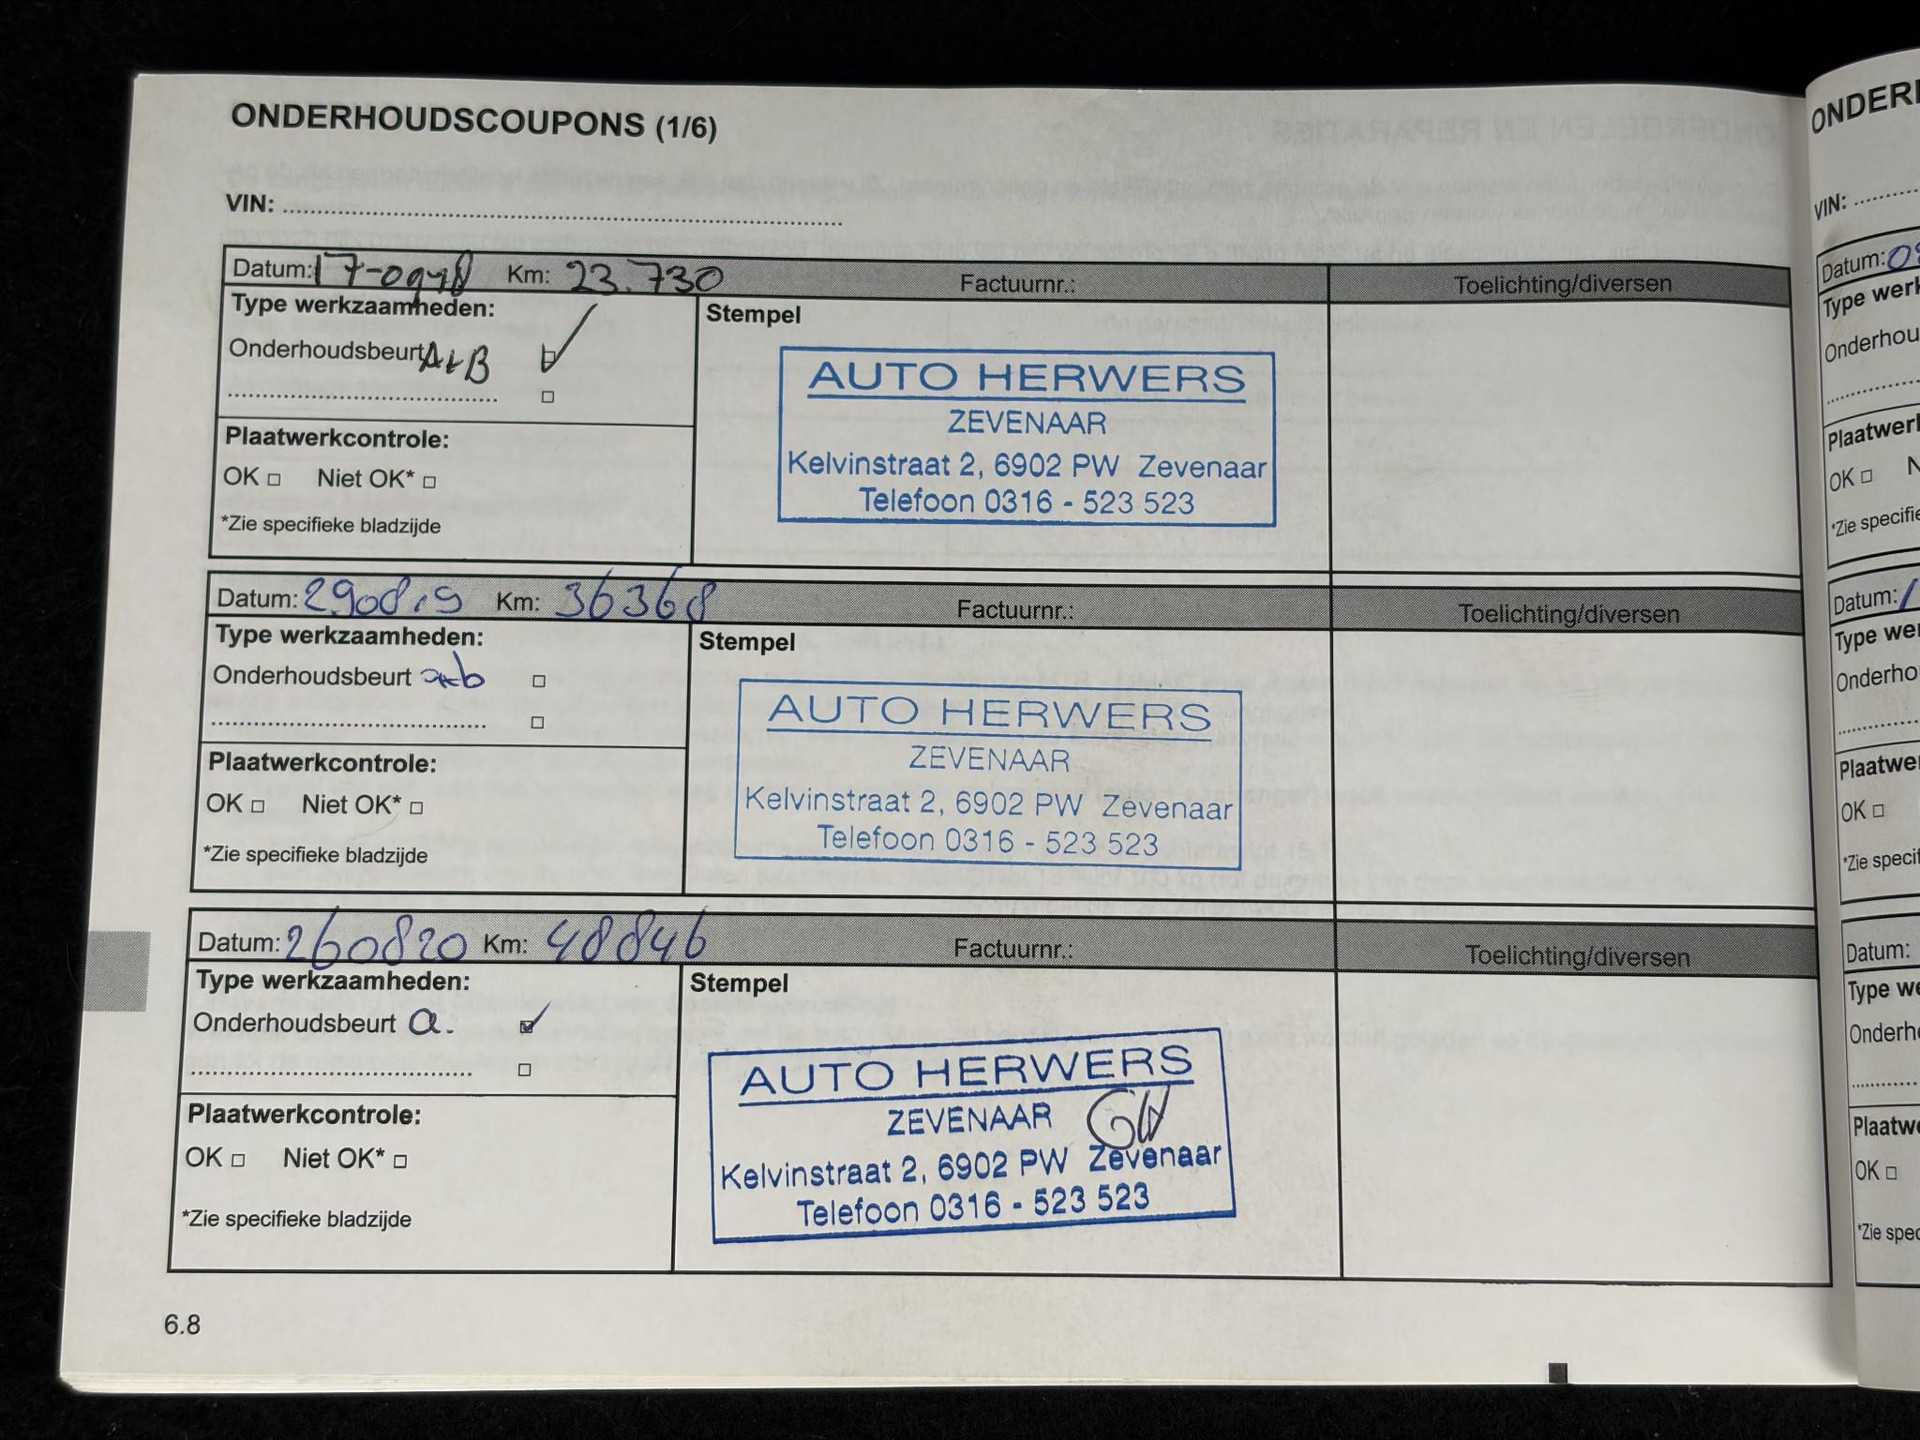 ONDERHOUDSCOUPONS (1/6)
VIN:
Datum: 17-09-18 Km: 23.730 Factuurnr.: Toelichting/diversen
Type werkzaamheden:
Stempel
Onderhoudsbeurt A+B
AUTO HERWERS
ZEVENAAR
Kelvinstraat 2, 6902 PW Zevenaar
Telefoon 0316 - 523 523
Plaatwerkcontrole:
OK Niet OK*
*Zie specifieke bladzijde
Datum: 290819 Km: 36368 Factuurnr.: Toelichting/diversen
Type werkzaamheden:
Stempel
Onderhoudsbeurt a+b
AUTO HERWERS
ZEVENAAR
Kelvinstraat 2, 6902 PW Zevenaar
Telefoon 0316 - 523 523
Plaatwerkcontrole:
OK Niet OK*
*Zie specifieke bladzijde
Datum: 260820 Km: 48846 Factuurnr.: Toelichting/diversen
Type werkzaamheden:
Stempel
Onderhoudsbeurt a.
AUTO HERWERS
ZEVENAAR
Kelvinstraat 2, 6902 PW Zevenaar
Telefoon 0316 - 523 523
Plaatwerkcontrole:
OK Niet OK*
*Zie specifieke bladzijde
6.8
VIN:
Datum:
OK
Datum:
OK
Datum:
OK